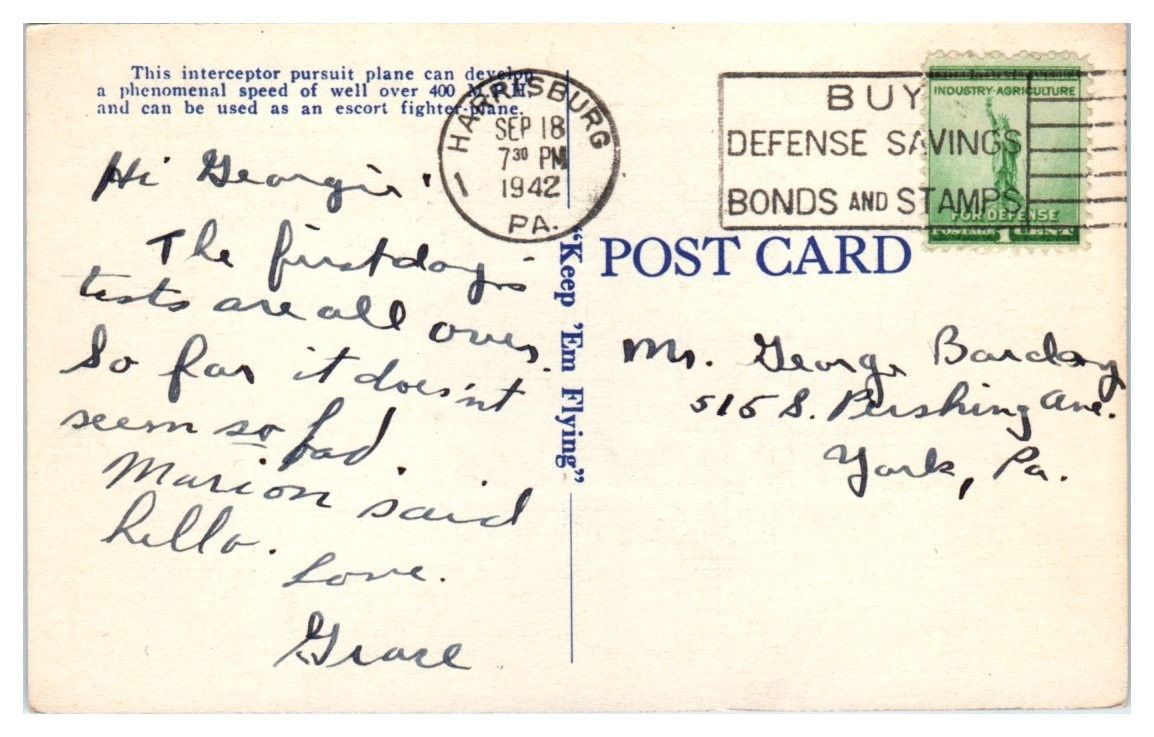 This interceptor pursuit plane can develop
a phenomenal speed of well over 400 M.P.H.
and can be used as an escort fighter-plane.
HARRISBURG
SEP 18
7 30 PM
1942
PA.
1
BUY
DEFENSE SAVINGS
BONDS AND STAMPS
INDUSTRY-AGRICULTURE
FOR DEFENSE
POSTAGE 1¢
Hi Georgie!
The first day's
tests are all over.
So far it does'nt
seem so bad.
Marion said
hello.
Love.
Grace
"Keep 'Em Flying"
POST CARD
Mr. George Barclay
515 S. Pershing Ave.
York, Pa.